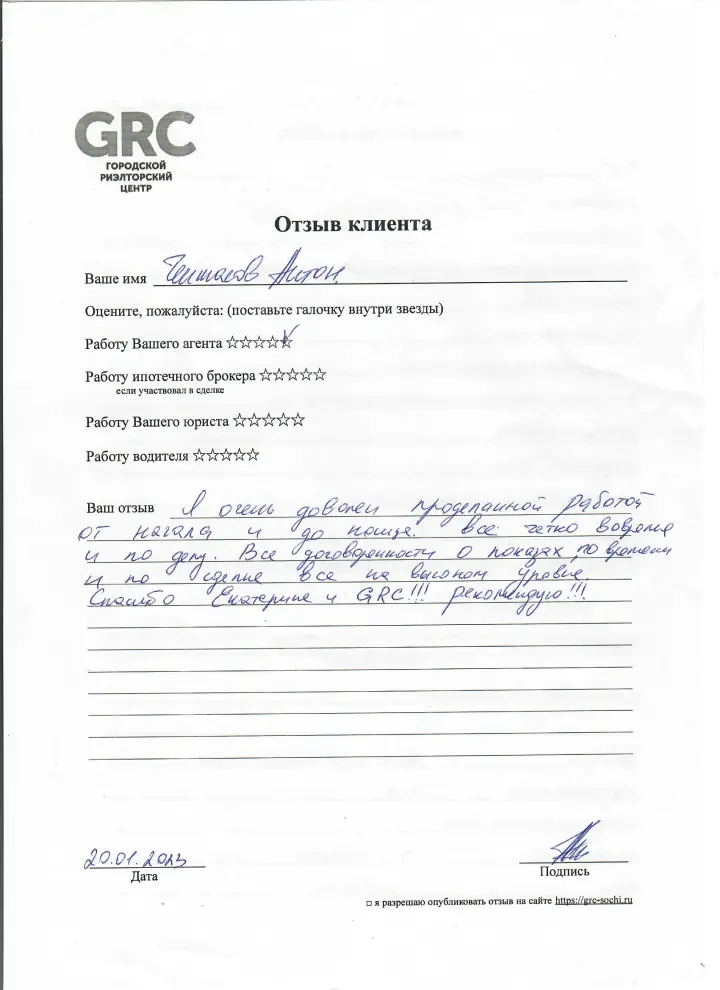 GRC
ГОРОДСКОЙ
РИЭЛТОРСКИЙ
ЦЕНТР
Отзыв клиента
Ваше имя Антон
Оцените, пожалуйста: (поставьте галочку внутри звезды)
Работу Вашего агента ☆☆☆☆☆
Работу ипотечного брокера ☆☆☆☆☆
если участвовал в сделке
Работу Вашего юриста ☆☆☆☆☆
Работу водителя ☆☆☆☆☆
Ваш отзыв Я очень доволен проделанной работой
от начала и до конца. Все четко вовремя
и по делу. Все договоренности о показах, по времени
и по сделке все на высоком уровне.
Спасибо Екатерине и GRC!!! рекомендую!!!
20.01.2023
Дата
Подпись
□ я разрешаю опубликовать отзыв на сайте https://grc-sochi.ru